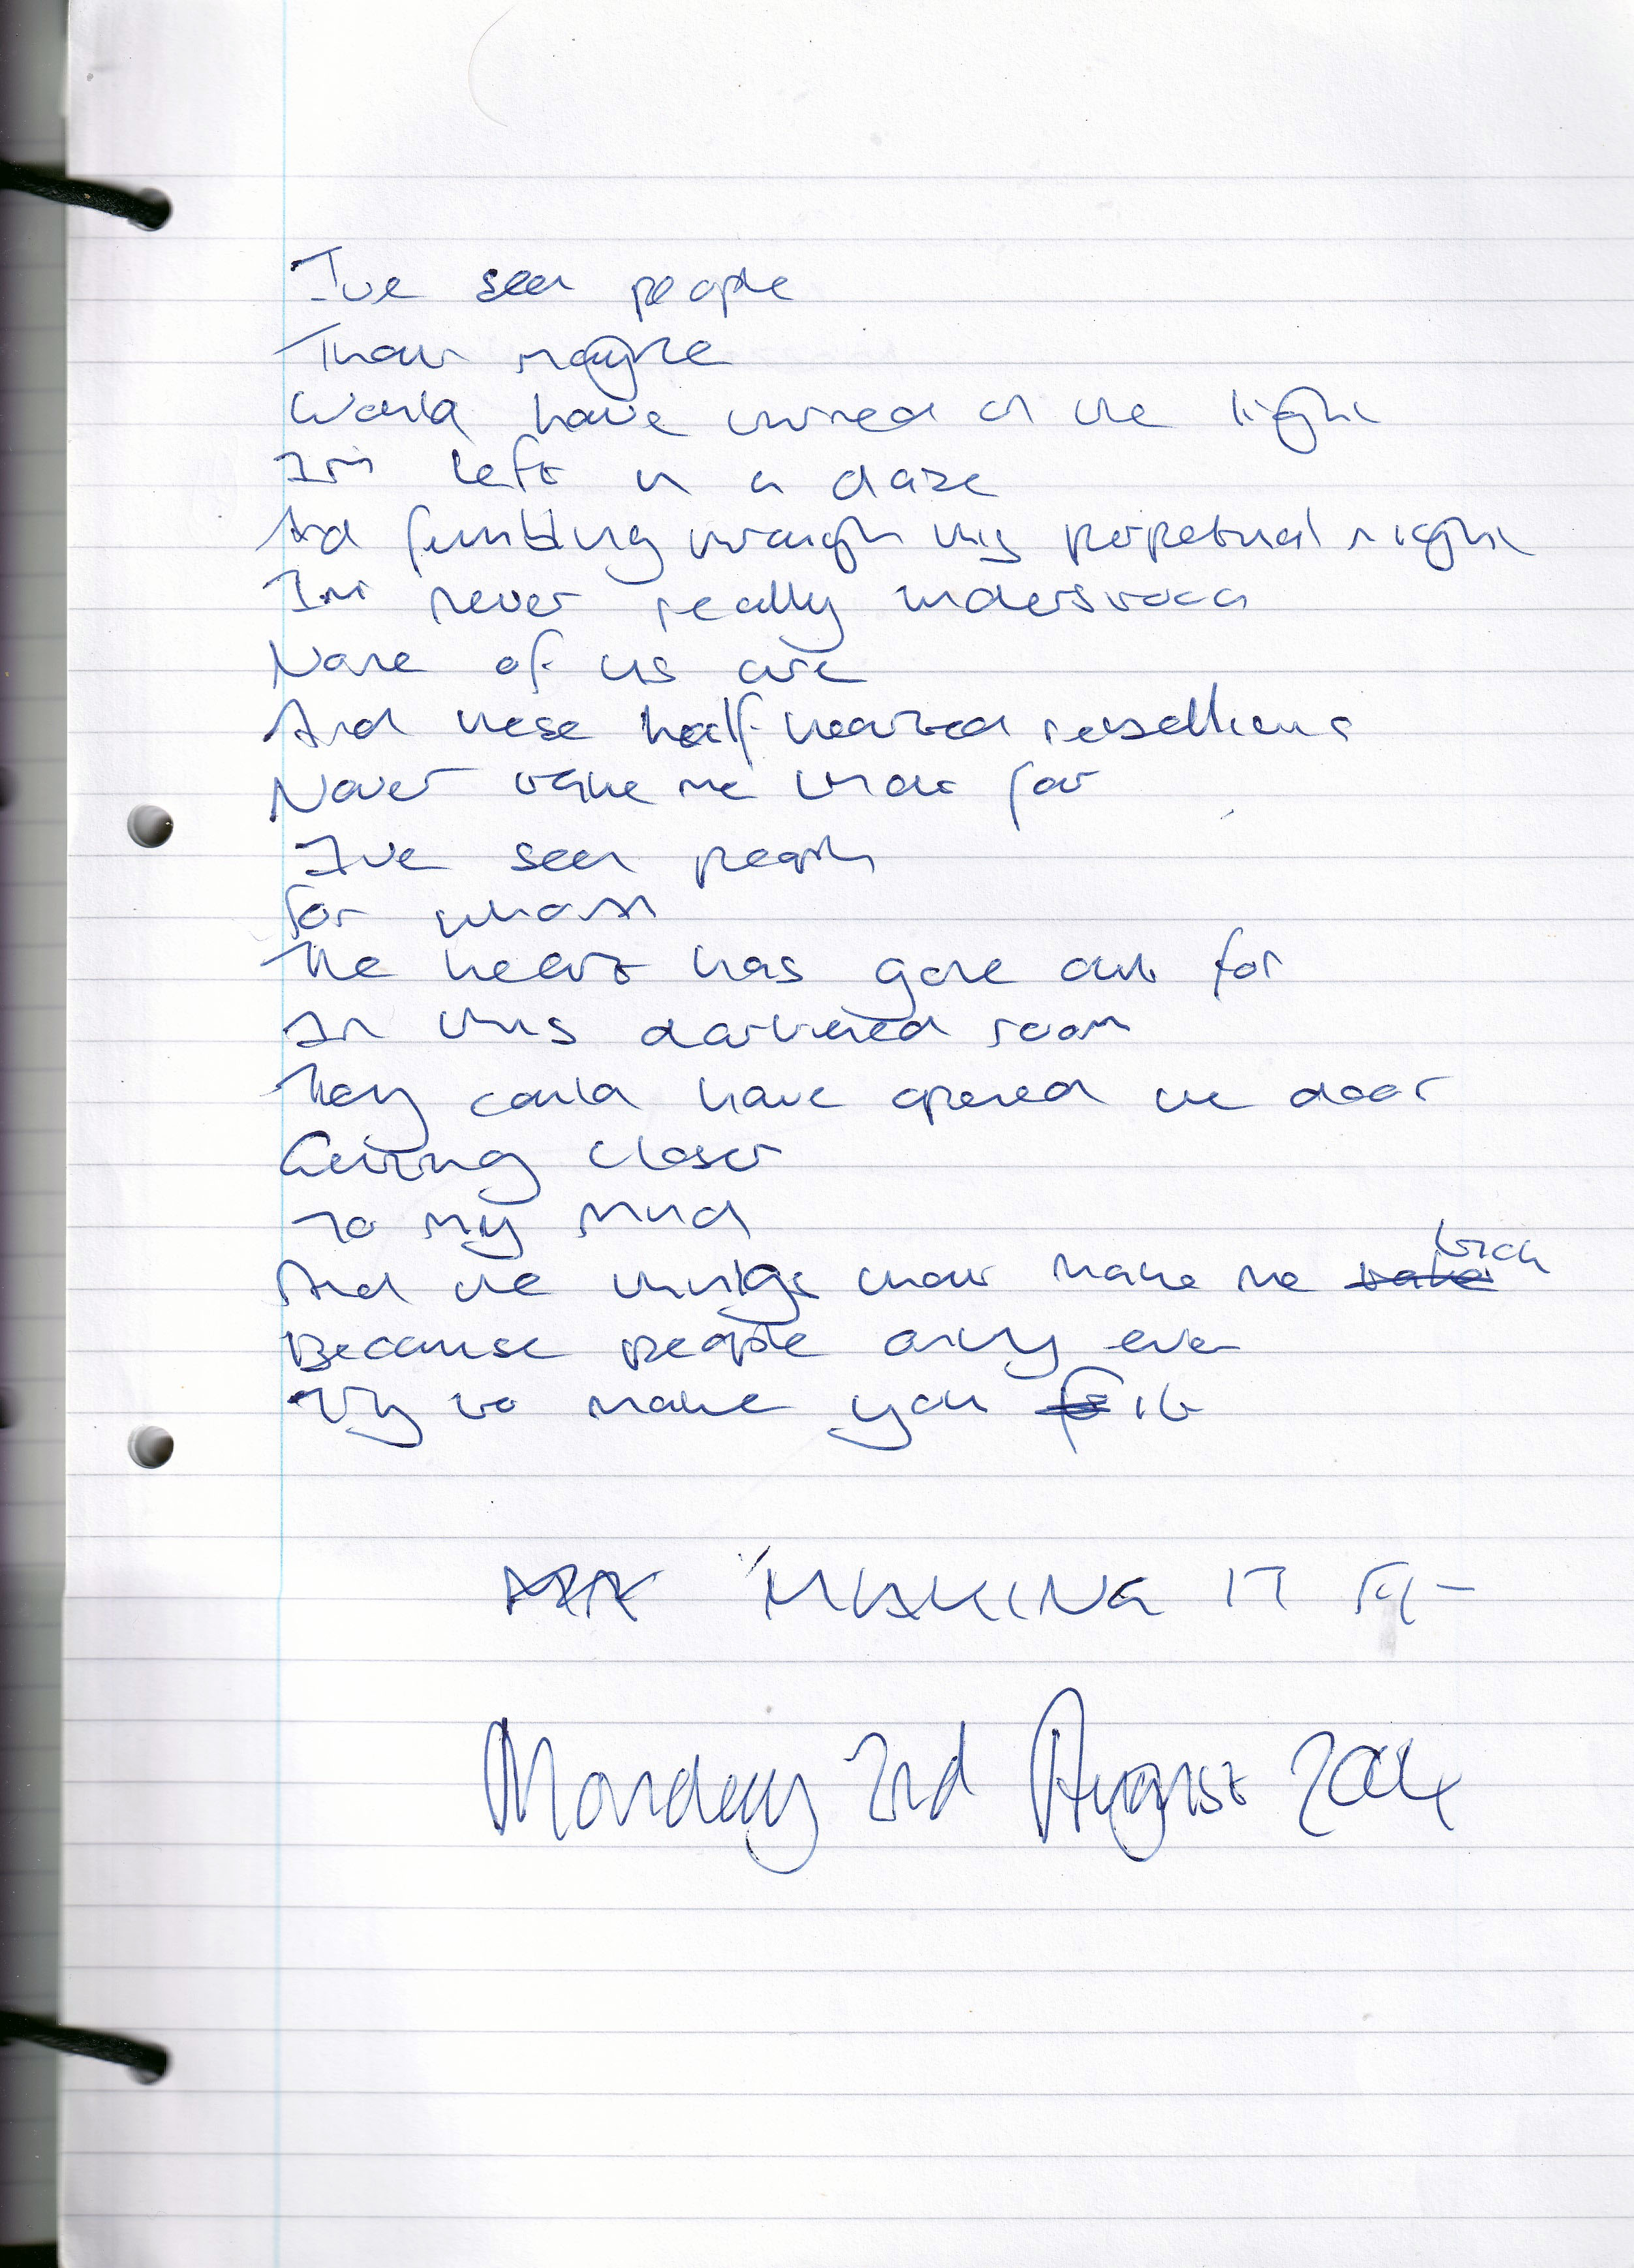 I've seen people
That maybe
Would have turned on the light
I'm left in a daze
And fumbling through this perpetual night
I'm never really understood
None of us are
And these half hearted rebellions
Never take me that far
I've seen people
For whom
The heart has gone out for
In this darkened room
They could have opened the door
Getting closer
To my mind
And the things that make me tick
Because people only ever
Try to make you fit
MAKING IT FIT
Monday 2nd August 2004